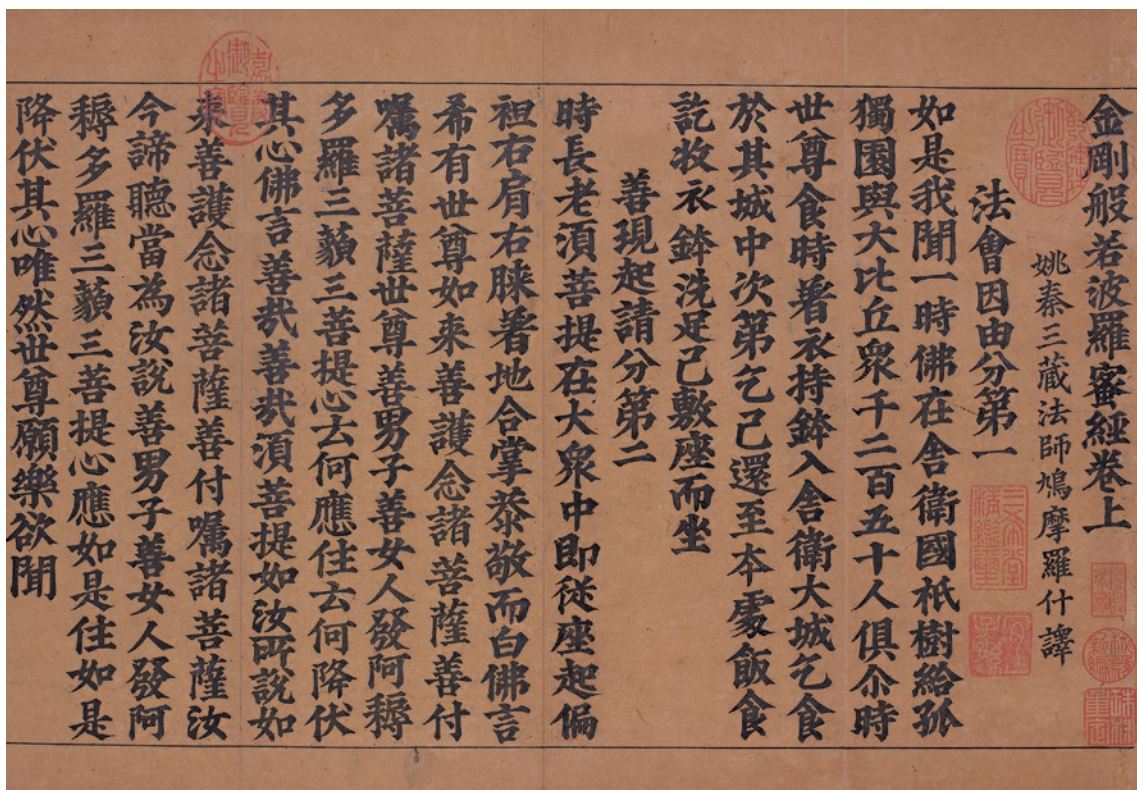 金剛般若波羅蜜經卷上
姚秦三藏法師鳩摩羅什譯
法會因由分第一
如是我聞一時佛在舍衛國祇樹給孤
獨園與大比丘眾千二百五十人俱尒時
世尊食時著衣持鉢入舍衛大城乞食
於其城中次第乞已還至本處飯食
訖收衣鉢洗足已敷座而坐
善現起請分第二
時長老須菩提在大眾中即從座起偏
袒右肩右膝著地合掌恭敬而白佛言
希有世尊如來善護念諸菩薩善付
囑諸菩薩世尊善男子善女人發阿耨
多羅三藐三菩提心云何應住云何降伏
其心佛言善哉善哉須菩提如汝所說如
來善護念諸菩薩善付囑諸菩薩汝
今諦聽當為汝說善男子善女人發阿
耨多羅三藐三菩提心應如是住如是
降伏其心唯然世尊願樂欲聞